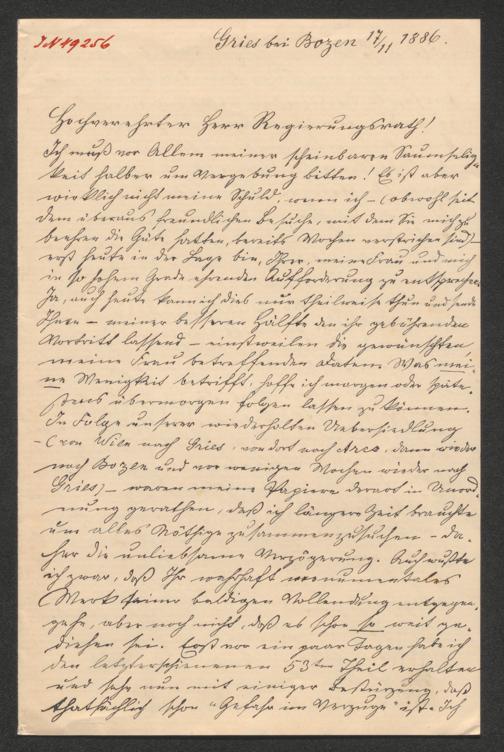 IN 49256
Gries bei Bozen 17/11 1886.
Hochverehrter Herr Regierungsrath!
Ich muß vor Allem meiner scheinbaren Saumselig-
keit halber um Vergebung bitten! Es ist aber
wirklich nicht meine Schuld, wenn ich – (obwohl seit
dem überaus freundlichen Besuche, mit dem Sie mich zu
beehren die Güte hatten, bereits Wochen verstrichen sind) –
erst heute in der Lage bin, Ihrer, meine Frau und mich
in so hohem Grade ehrenden Aufforderung zu entsprechen.
Ja, auch heute kann ich dies nur theilweise thun und sende
Ihnen – meiner besseren Hälfte den ihr gebührenden
Vortritt lassend – einstweilen die gewünschten,
meine Frau betreffenden Daten. Was mei-
ne Wenigkeit betrifft, hoffe ich morgen oder späte-
stens übermorgen folgen lassen zu können.
In Folge unserer wiederholten Uebersiedlung
– (von Wien nach Gries, von dort nach Arco, dann wieder
nach Bozen und vor wenigen Wochen wieder nach
Gries) – waren meine Papiere derart in Unord-
nung gerathen, daß ich längere Zeit brauchte
um alles Nöthige zusammenzusuchen – da-
her die unliebsame Verzögerung. Auch wußte
ich zwar, daß Ihr wahrhaft monumentales
Werk seiner baldigen Vollendung entgegen-
gehe, aber noch nicht, daß es schon so weit ge-
diehen sei. Erst vor ein paar Tagen habe ich
den letzterschienenen 53ten Theil erhalten
und sehe nun mit einiger Bestürzung, daß
thatsächlich schon "Gefahr im Verzuge" ist. Ich